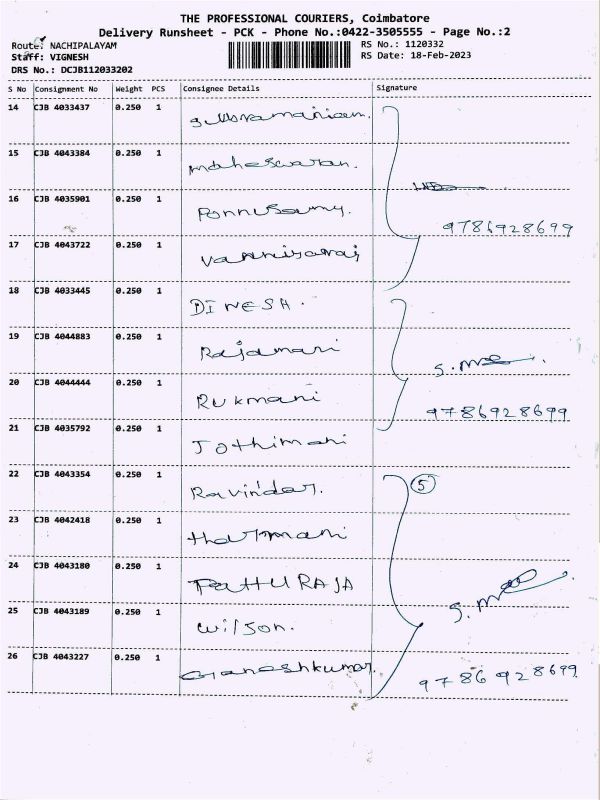 THE PROFESSIONAL COURIERS, Coimbatore
Delivery Runsheet - PCK - Phone No.:0422-3505555 - Page No.:2
Route: NACHIPALAYAM RS No.: 1120332
Staff: VIGNESH RS Date: 18-Feb-2023
DRS No.: DCJB112033202
S No Consignment No Weight PCS Consignee Details Signature
14 CJB 4033437 0.250 1 Subramaniam.
15 CJB 4043384 0.250 1 maheswaran.
16 CJB 4035901 0.250 1 Ponnusamy.
9786928699
17 CJB 4043722 0.250 1
18 CJB 4033445 0.250 1 DINESH.
19 CJB 4044883 0.250 1 Rajamani
20 CJB 4044444 0.250 1 Rukmani
9786928699
21 CJB 4035792 0.250 1 Jothimani
22 CJB 4043354 0.250 1 Ravindar. 5
23 CJB 4042418 0.250 1
24 CJB 4043180 0.250 1 PATTURAJA
25 CJB 4043189 0.250 1 Wilson.
26 CJB 4043227 0.250 1 Ganeshkumar.
9786928699